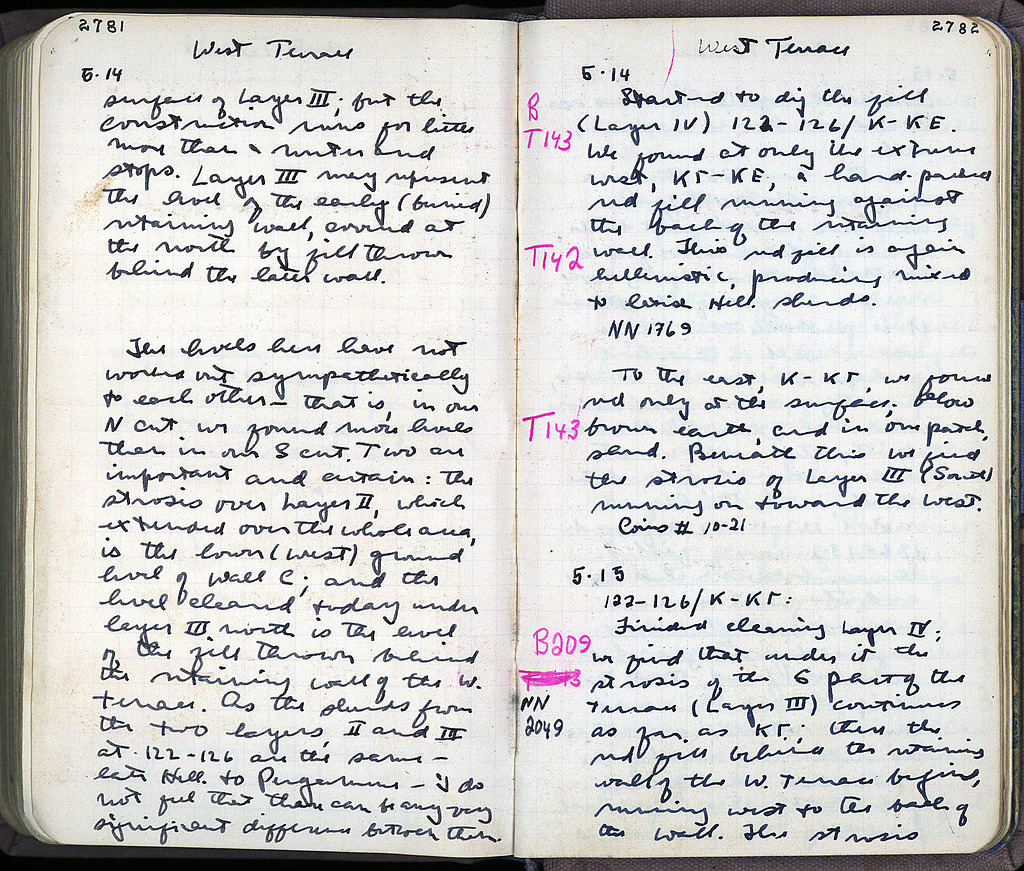 2781
West Terrace
5·14
surface of Layer III; but the
construction runs for little
more than a meter and
stops. Layer III may represent
the level of the early (buried)
retaining wall, covered at
the north by fill thrown
behind the later wall.
The levels here have not
worked out sympathetically
to each other — that is, in our
N cut we found more levels
than in our S cut. Two are
important and certain: the
strosis over Layer II, which
extended over the whole area,
is the lower (west) ground
level of wall C; and the
level cleared today under
layer III north is the level
of the fill thrown behind
the retaining wall of the W.
Terrace. As the sherds from
the two layers, II and III
at 122-126 are the same —
late Hell. to Pergamene — I do
not feel that there can be any very
significant difference between them.
2782
West Terrace
5·14
Started to dig the fill
(Layer IV) 122-126/K-KE.
We found at only the extreme
west, KΓ-KE, a hard-packed
red fill running against
the back of the retaining
wall. This red fill is again
hellenistic, producing mixed
to Hell. sherds.
NN 1769
To the east, K-KΓ, we found
red only at the surface; below
brown earth, and in one patch,
sand. Beneath this we find
the strosis of Layer III (South)
running on toward the west.
Coins # 10-21
5·15
122-126/K-KΓ:
Finished cleaning Layer IV;
we find that under it the
strosis of the S part of the
Terrace (Layer III) continues
as far as KΓ; then the
red fill behind the retaining
wall of the W. Terrace begins,
running west to the back of
the wall. The strosis
B
T143
T142
T143
B209
NN
2049